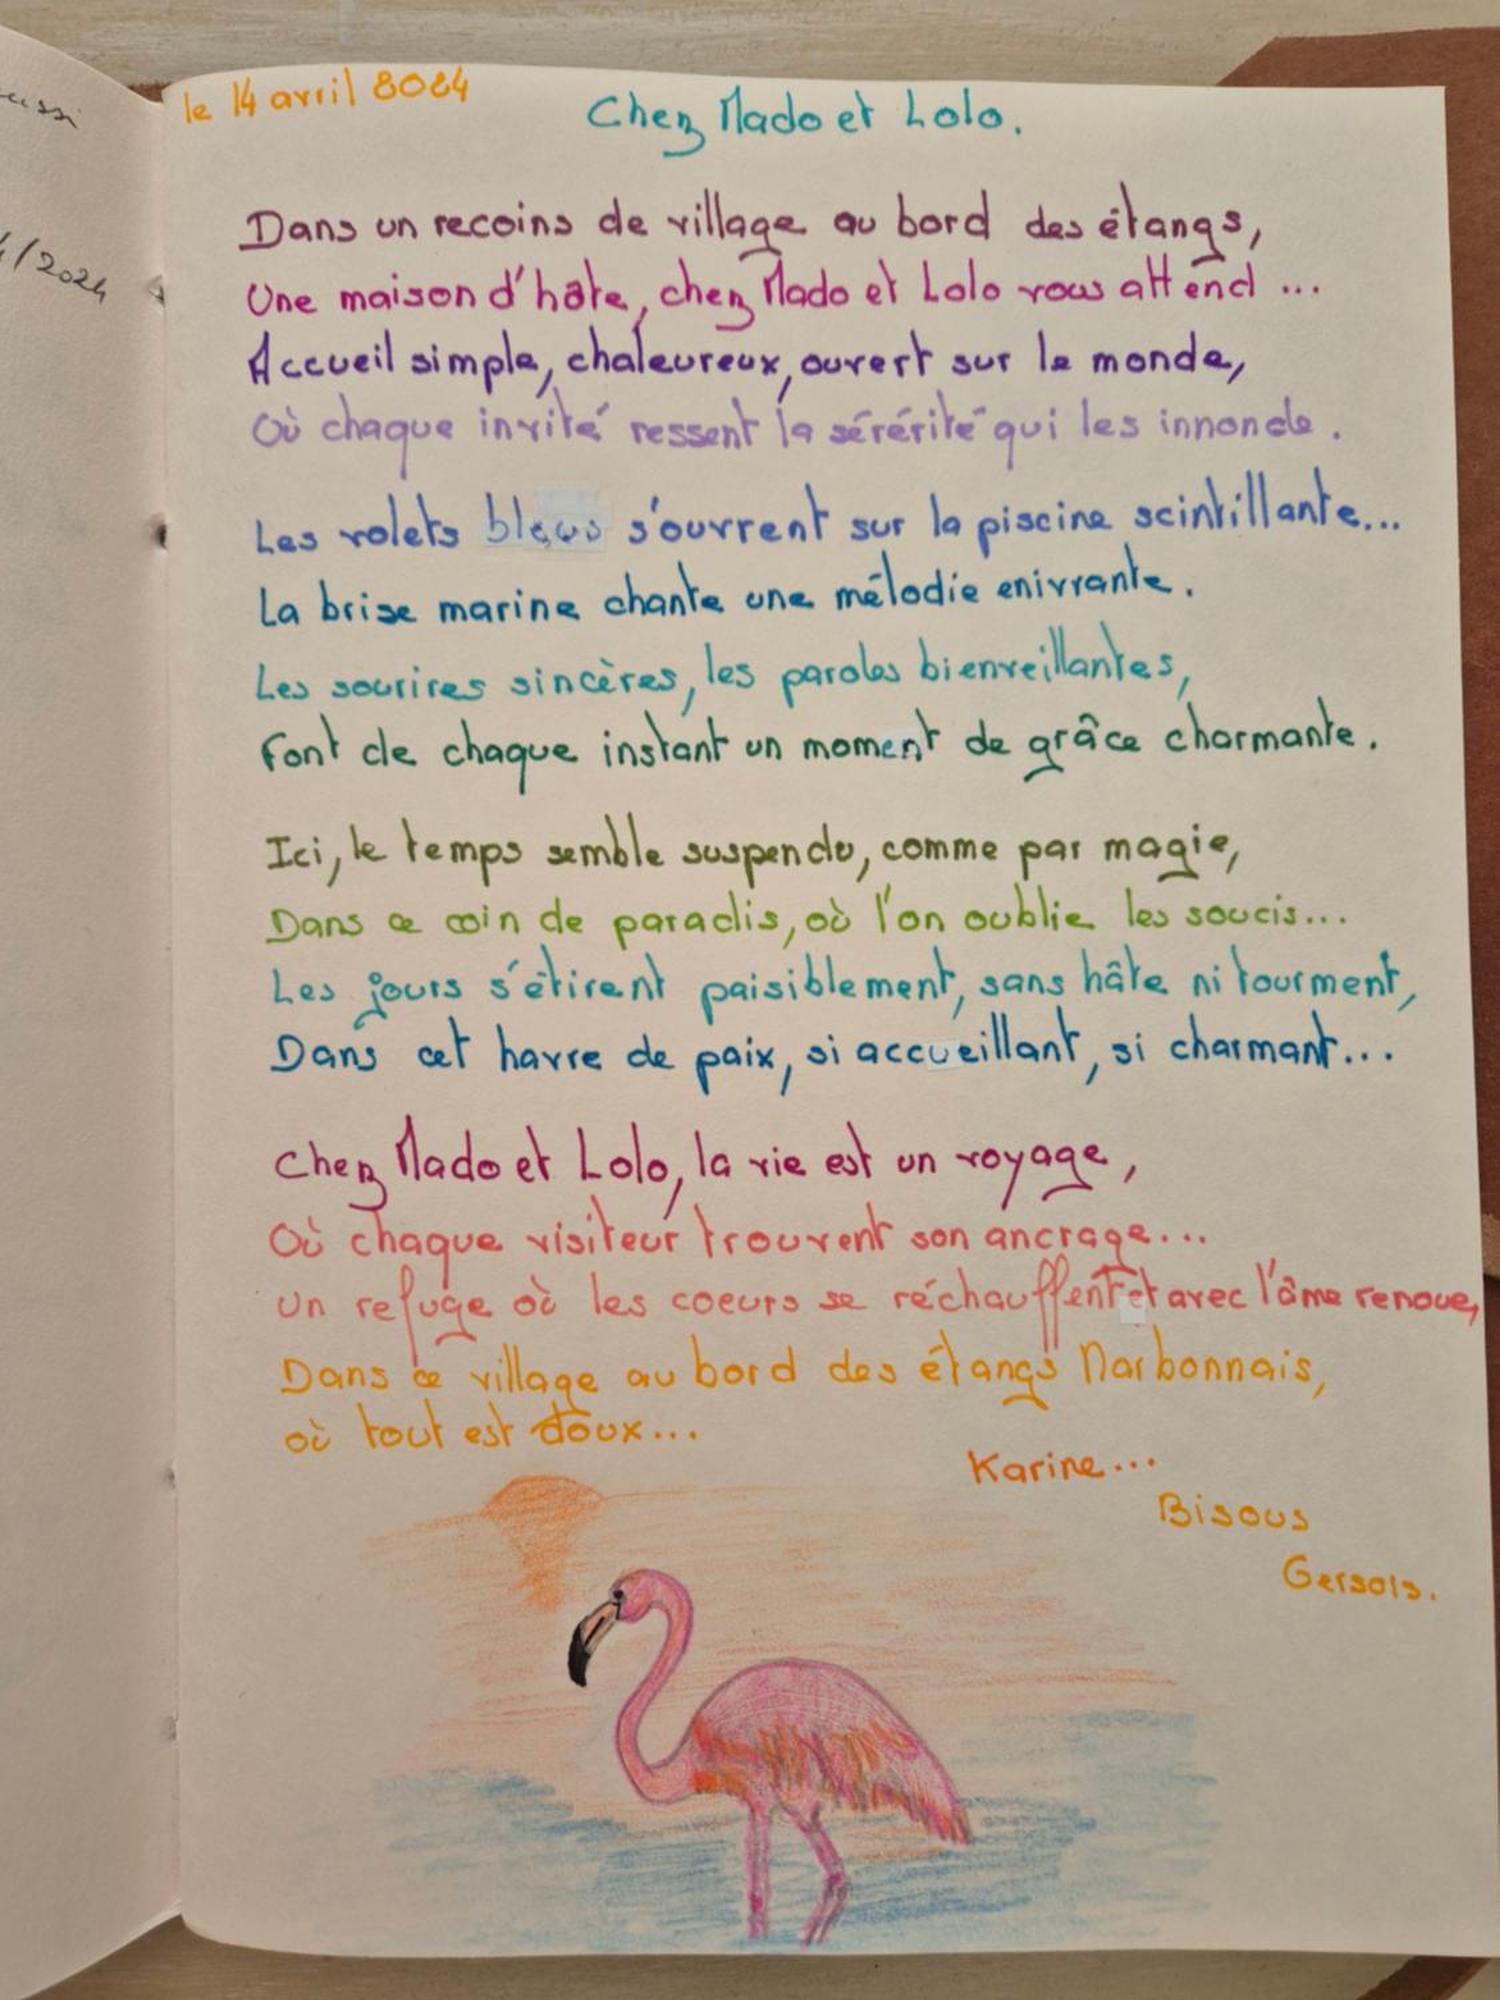 ussi
/2024
le 14 avril 2024
Chez Mado et Lolo.
Dans un recoins de village au bord des étangs,
Une maison d'hôte, chez Mado et Lolo vous attend ...
Accueil simple, chaleureux, ouvert sur le monde,
Où chaque invité ressent la sérérité qui les innonde.
Les volets bleus s'ouvrent sur la piscine scintillante...
La brise marine chante une mélodie enivrante.
Les sourires sincères, les paroles bienveillantes,
Font de chaque instant un moment de grâce charmante.
Ici, le temps semble suspendu, comme par magie,
Dans ce coin de paradis, où l'on oublie les soucis...
Les jours s'étirent paisiblement, sans hâte ni tourment,
Dans cet havre de paix, si accueillant, si charmant...
Chez Mado et Lolo, la vie est un voyage,
Où chaque visiteur trouvent son ancrage...
Un refuge où les coeurs se réchauffent et avec l'âme renoue,
Dans ce village au bord des étangs Narbonnais,
où tout est doux...
Karine...
Bisous
Gersois.